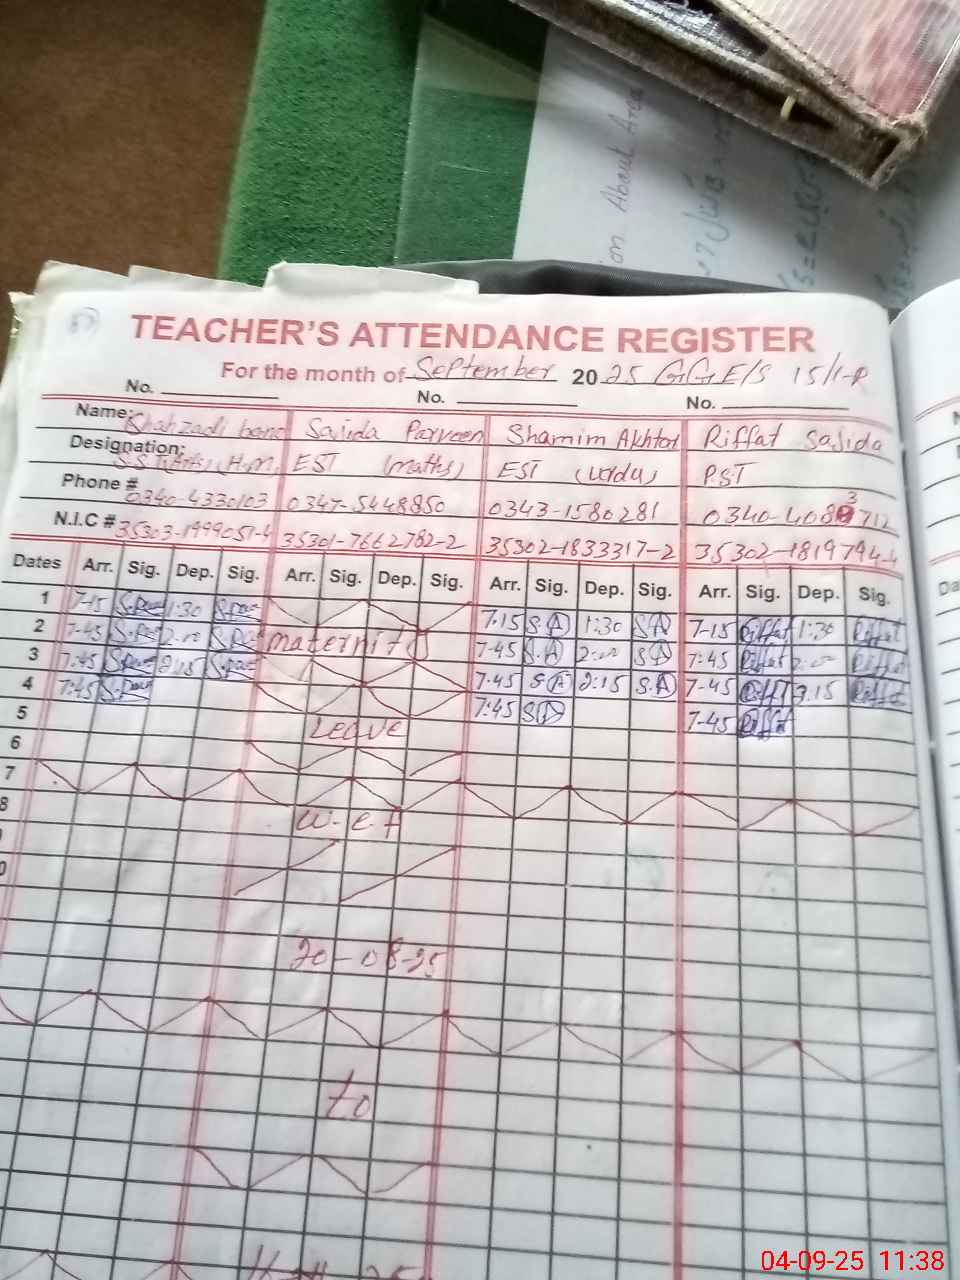 ion About Area
87
TEACHER'S ATTENDANCE REGISTER
For the month of September 2025 GGE/S 15/1-R
No. No. No.
Name: Shahzadi bano Sajida Parveen Shamim Akhtar Riffat Sajida
Designation: SST(Arts) H.M. EST (maths) EST (urdu) PST
Phone # 0340-4330103 0347-5448850 0343-1580281 0340-408 3 712
N.I.C # 35303-1999051-4 35301-7662782-2 35302-1833317-2 35302-1819794-4
Dates Arr. Sig. Dep. Sig. Arr. Sig. Dep. Sig. Arr. Sig. Dep. Sig. Arr. Sig. Dep. Sig.
1 7-15 1:30 7.15 S.A 1:30 SA 7-15 Riffat 1:30 Riffat
2 7-45 2:00 maternity 7-45 S.A 2:00 SA 7:45 Riffat 2:00 Riffat
3 7:45 2:15 7-45 SA 2:15 S.A 7-45 Riffat 2.15 Riffat
4 7:45 7:45 SA 7-45 Riffat
5 Leave
6
7
8 w.e.f
20-08-25
to
04-09-25 11:38